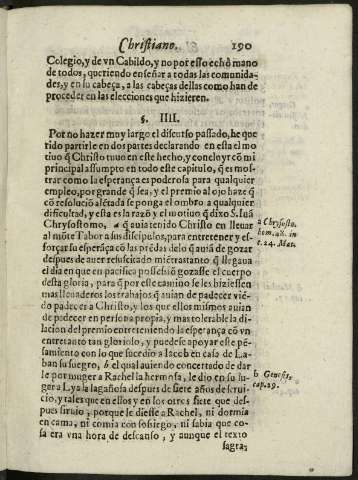 Christiano. 190
Colegio, y de vn Cabildo, y no por esso echò mano
de todos, queriendo enseñar a todas las comunida-
des, y en su cabeça, a las cabeças dellas como han de
proceder en las elecciones que hizieren.
§. IIII.
Por no hazer muy largo el discurso passado, he que
rido partirle en dos partes declarando en esta el mo
tiuo q̃ Christo tuuo en este hecho, y concluyr cõ mi
principal assumpto en todo este capitulo, q̃ es mos-
trar como la esperança es poderosa para qualquier
empleo, por grande q̃ sea, y el premio al ojo haze q̃
cõ resolució alétada se ponga el ombro a qualquier
dificultad, y esta es la razõ y el motiuo q̃ dixo S. Iuã
Chrysostomo, a q̃ auia tenido Christo en lleuar
a Chrysosto.
hom. in
c. 24. Mat.
al mõte Tabor a sus discipulos, para entretener y es-
forçar su esperãça cõ las prẽdas de lo q̃ auiã de gozar
despues de auer resuscitado miẽtras tanto q̃ llegaua
el dia en que en pacifica possesiõ gozasse el cuerpo
desta gloria, para q̃ por este camino se les hiziessen
mas lleuaderos los trabajos q̃ auian de padecer viẽ-
do padecer a Christo, y los que ellos mismos auian
de padecer en persona propia, y mas tolerable la di-
lacion del premio entreteniendo la esperança cõ vn
entretanto tan glorioso, y puedese apoyar este pẽ-
samiento con lo que sucedio a Iacob en casa de La-
ban su suegro, b el qual auiendo concertado de dar
b Genesis,
cap. 29.
le por muger a Rachel la hermosa, le dio en su lu-
gar a Lya la lagañosa despues de siete años de serui-
cio, y tales que en ellos y en los otros siete que des-
pues siruio, porque le diesse a Rachel, ni dormia
en cama, ni comia con sosiego, ni sabia que co-
sa era vna hora de descanso, y aunque el texto
sagra-